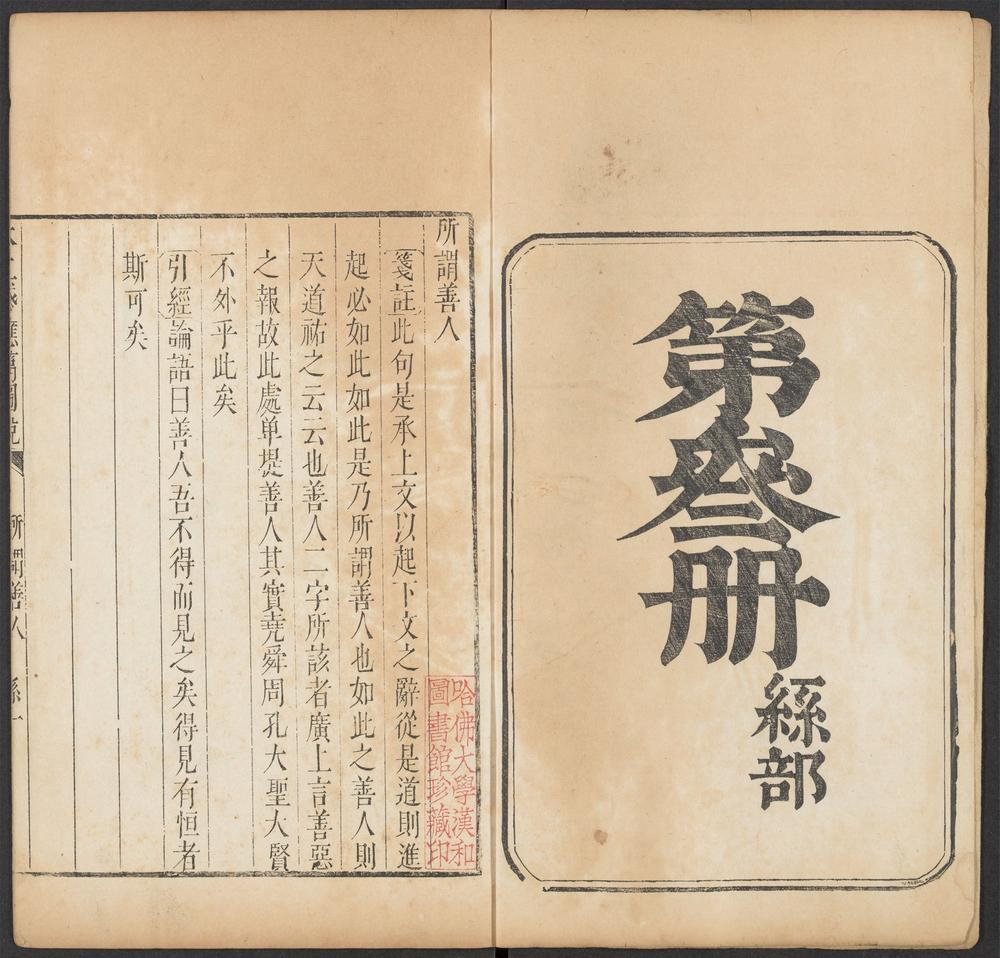 第叁册
絲部
所謂善人
箋註此句是承上文以起下文之辭從是道則進
起必如此如此是乃所謂善人也如此之善人則
天道祐之云云也善人二字所該者廣上言善惡
之報故此處单提善人其實堯舜周孔大聖大賢
不外乎此矣
引經論語曰善人吾不得而見之矣得見有恒者
斯可矣
所謂善人
哈佛大學漢和
圖書館珍藏印